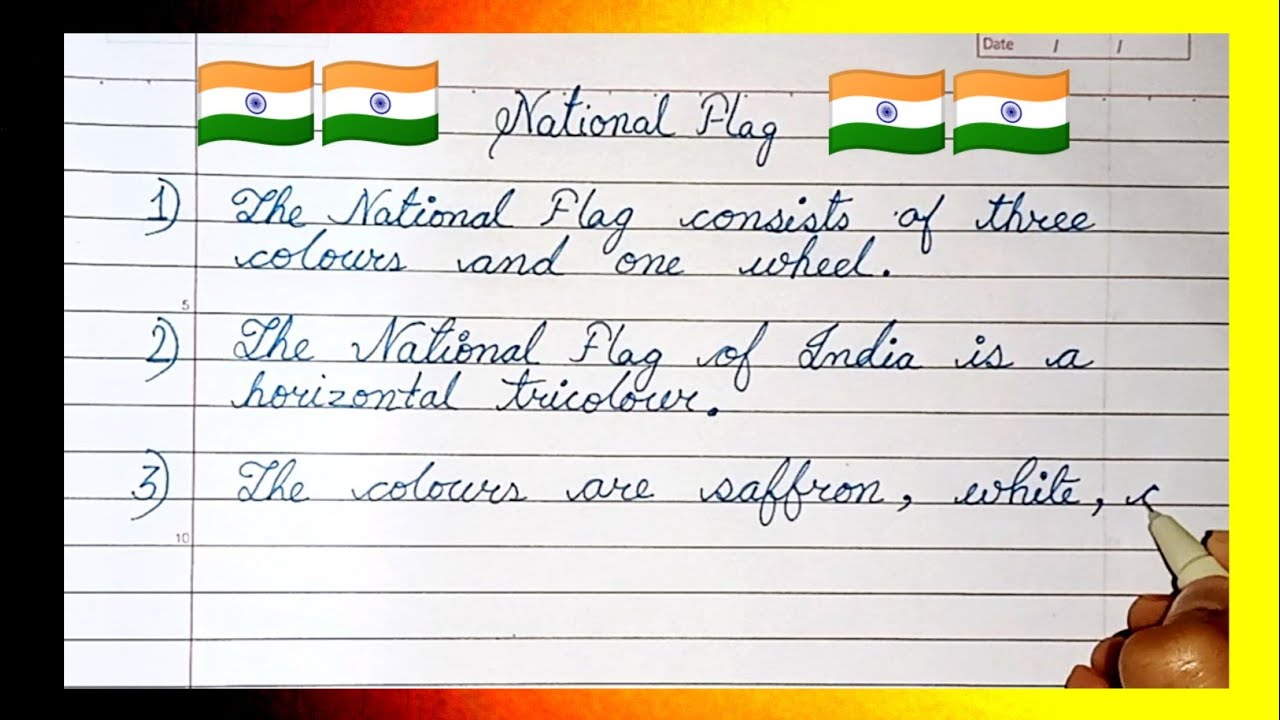 Date / /
National Flag
1) The National Flag consists of three
colours and one wheel.
5
2) The National Flag of India is a
horizontal tricolour.
3) The colours are saffron, white,
10